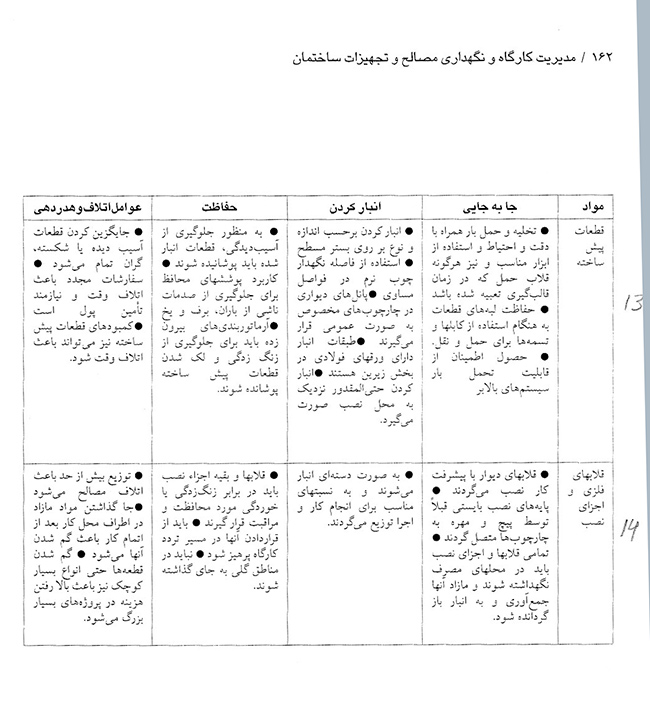 ۱۶۲ / مدیریت کارگاه و نگهداری مصالح و تجهیزات ساختمان
مواد
جا به جایی
انبار کردن
حفاظت
عوامل اتلاف و هدردهی
قطعات
پیش
ساخته
● تخلیه و حمل بار همراه با
دقت و احتیاط و استفاده از
ابزار مناسب و نیز هرگونه
قلاب حمل که در زمان
قالب‌گیری تعبیه شده باشد
● حفاظت لبه‌های قطعات
به هنگام استفاده از کابلها و
تسمه‌ها برای حمل و نقل.
● حصول اطمینان از
قابلیت تحمل بار
سیستم‌های بالابر
● انبار کردن برحسب اندازه
و نوع بر روی بستر مسطح
● استفاده از فاصله نگهدار
چوب نرم در فواصل
مساوی ● پانل‌های دیواری
در چارچوب‌های مخصوص
به صورت عمومی قرار
می‌گیرند ● طبقات انبار
دارای ورقهای فولادی در
بخش زیرین هستند ● انبار
کردن حتی‌المقدور نزدیک
به محل نصب صورت
می‌گیرد.
● به منظور جلوگیری از
آسیب‌دیدگی، قطعات انبار
شده باید پوشانیده شوند ●
کاربرد پوششهای محافظ
برای جلوگیری از صدمات
ناشی از باران، برف و یخ
● آرماتوربندی‌های بیرون
زده باید برای جلوگیری از
زنگ زدگی و لک شدن
قطعات پیش ساخته
پوشانده شوند.
● جایگزین کردن قطعات
آسیب دیده یا شکسته،
گران تمام می‌شود ●
سفارشات مجدد باعث
اتلاف وقت و نیازمند
تأمین پول است
● کمبودهای قطعات پیش
ساخته نیز می‌تواند باعث
اتلاف وقت شود.
13
قلابهای
فلزی و
اجزای
نصب
● قلابهای دیوار با پیشرفت
کار نصب می‌گردند ●
پایه‌های نصب بایستی قبلاً
توسط پیچ و مهره به
چارچوب‌ها متصل گردند ●
تمامی قلابها و اجزای نصب
باید در محلهای مصرف
نگهداشته شوند و مازاد آنها
جمع‌آوری و به انبار باز
گردانده شود.
● به صورت دسته‌ای انبار
می‌شوند و به نسبتهای
مناسب برای انجام کار و
اجرا توزیع می‌گردند.
● قلابها و بقیه اجزاء نصب
باید در برابر زنگ‌زدگی یا
خوردگی مورد محافظت و
مراقبت قرار گیرند ● باید از
قراردادن آنها در مسیر تردد
کارگاه پرهیز شود ● نباید در
مناطق گلی به جای گذاشته
شوند.
● توزیع بیش از حد باعث
اتلاف مصالح می‌شود
● جا گذاشتن مواد مازاد
در اطراف محل کار بعد از
اتمام کار باعث گم شدن
آنها می‌شود ● گم شدن
قطعه‌ها حتی انواع بسیار
کوچک نیز باعث بالا رفتن
هزینه در پروژه‌های بسیار
بزرگ می‌شود.
14